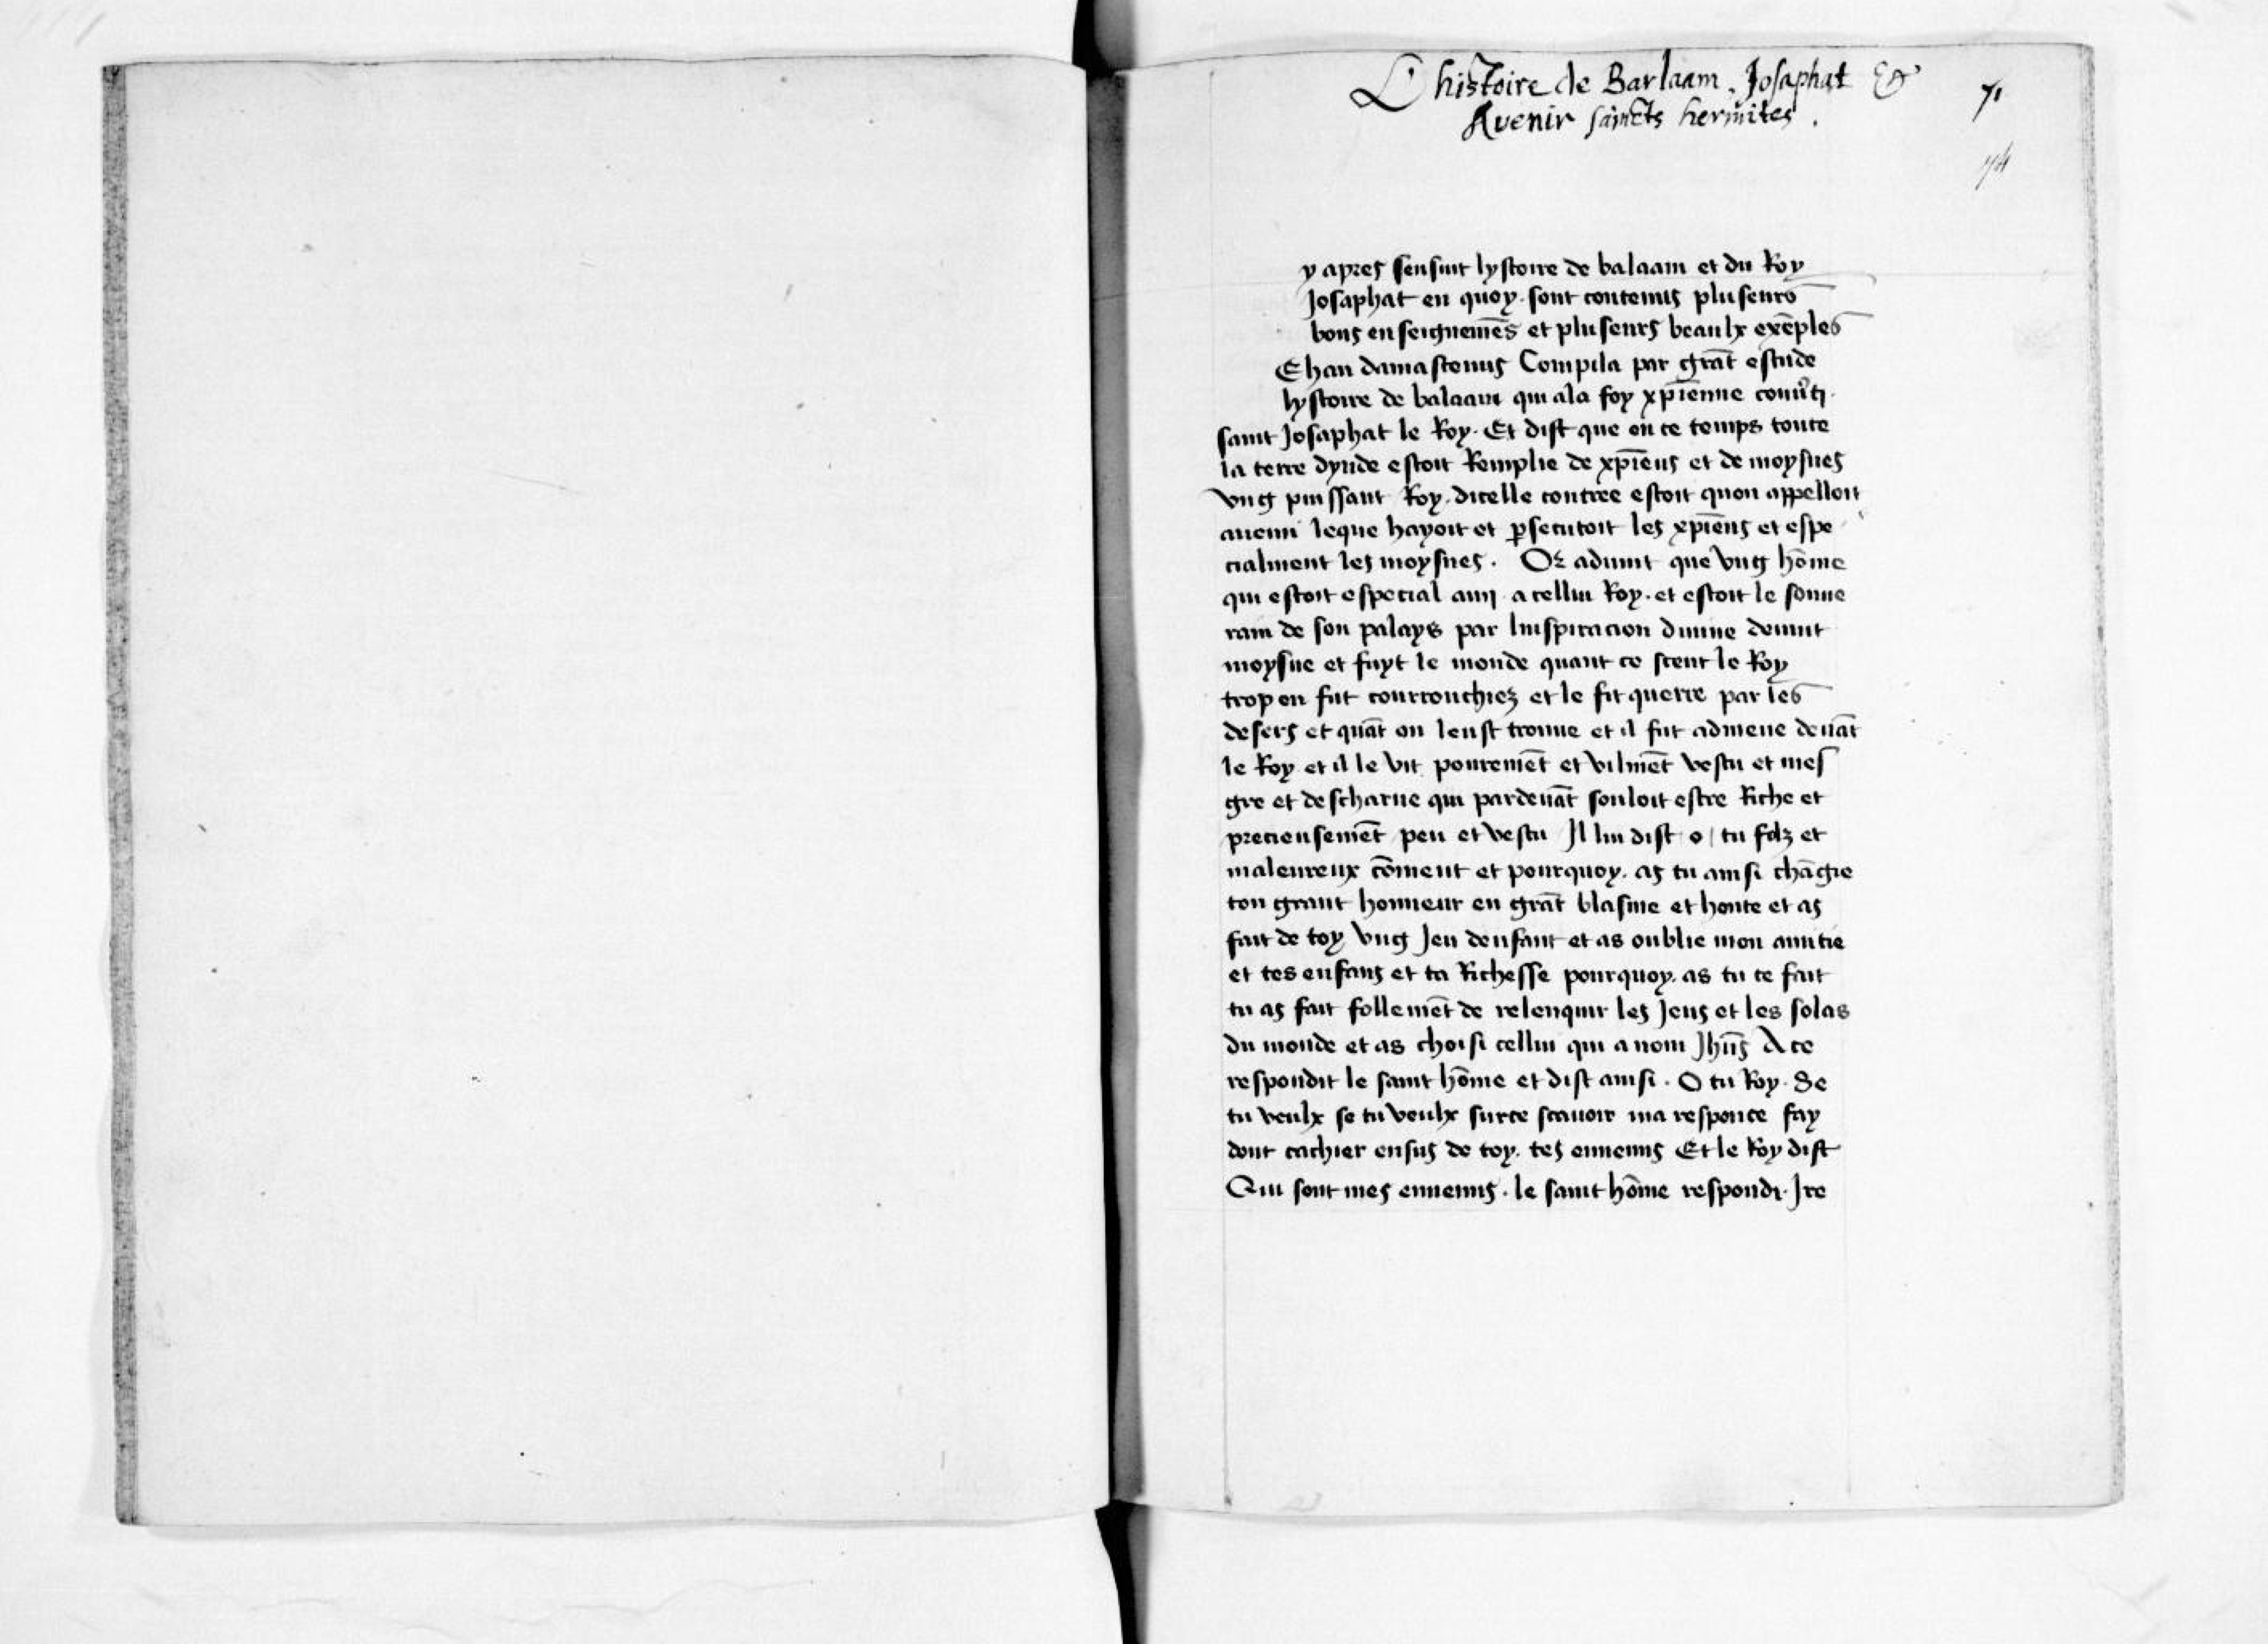 L'histoire de Barlaam, Josaphat &
Avenir saincts hermites.
71
74
y apres sensuit lystoire de balaam et du Roy
Josaphat en quoy sont contenus pluseurs
bons enseignemēs et pluseurs beaulx exēples
Ehan damascenus Compila par grāt estude
lystoire de balaam qui ala foy xpīenne conu̾ti
saint Josaphat le Roy. Et dist que en ce temps toute
la terre dynde estoit Remplie de xpīens et de moysnes
vng puissant Roy dicelle contree estoit quon appelloit
auenir leque hayoit et ꝑsecutoit les xpīens et espe
cialment les moysnes. Or aduint que vng hōme
qui estoit especial amy a cellui Roy. et estoit le souue
rain de son palays par linspiracion diuine deuint
moysne et fuyt le monde quant ce sceut le Roy
trop en fut courrouchiez et le fit querre par les
desers et quāt on leust trouue et il fut admene deuāt
le Roy et il le vit pouremēt et vilmēt vestu et mes
gre et descharne qui pardeuāt souloit estre Riche et
precieusemēt peu et vestu Il lui dist o tu folz et
maleureux cōment et pourquoy. as tu ainsi chāgie
ton grant honneur en grāt blasme et honte et as
fait de toy vng Jeu denfant et as oublie mon amitie
et tes enfans et ta Richesse pourquoy. as tu ce fait
tu as fait follemēt de relenquir les Jeus et les solas
du monde et as choisi cellui qui a nom Jhūs A ce
respondit le saint hōme et dist ainsi. O tu Roy. Se
tu veulx se tu veulx surce scauoir ma responce fay
dont cachier ensus de toy. tes ennemis Et le Roy dist
Qui sont mes ennemis. le saint hōme respondi. Ire